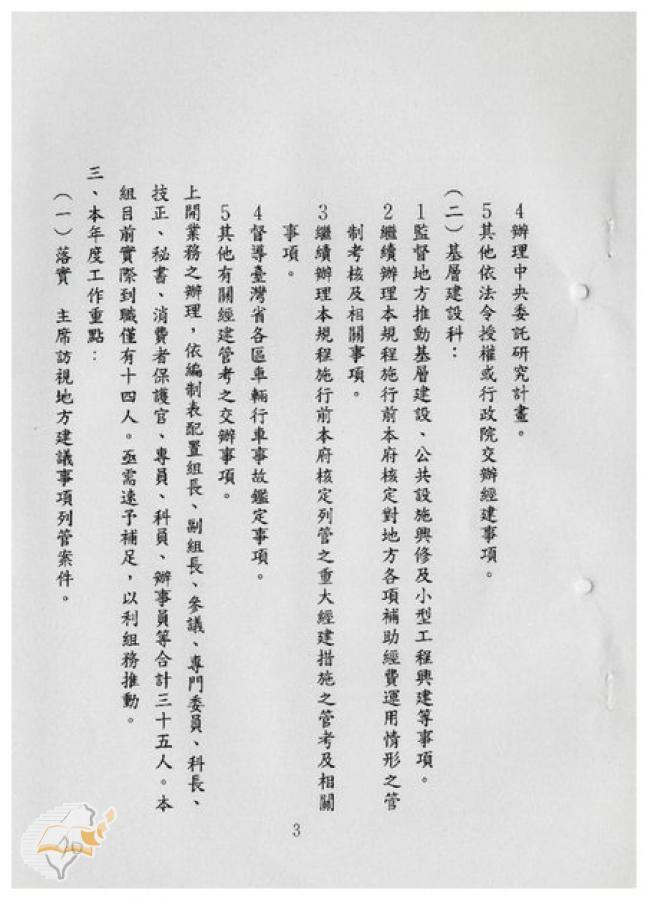 4辦理中央委託研究計畫。
5其他依法令授權或行政院交辦經建事項。
(二)基層建設科：
1監督地方推動基層建設、公共設施興修及小型工程興建等事項。
2繼續辦理本規程施行前本府核定對地方各項補助經費運用情形之管
制考核及相關事項。
3繼續辦理本規程施行前本府核定列管之重大經建措施之管考及相關
事項。
4督導臺灣省各區車輛行車事故鑑定事項。
5其他有關經建管考之交辦事項。
上開業務之辦理，依編制表配置組長、副組長、參議、專門委員、科長、
技正、秘書、消費者保護官、專員、科員、辦事員等合計三十五人。本
組目前實際到職僅有十四人。亟需速予補足，以利組務推動。
三、本年度工作重點：
(一)落實　主席訪視地方建議事項列管案件。
3